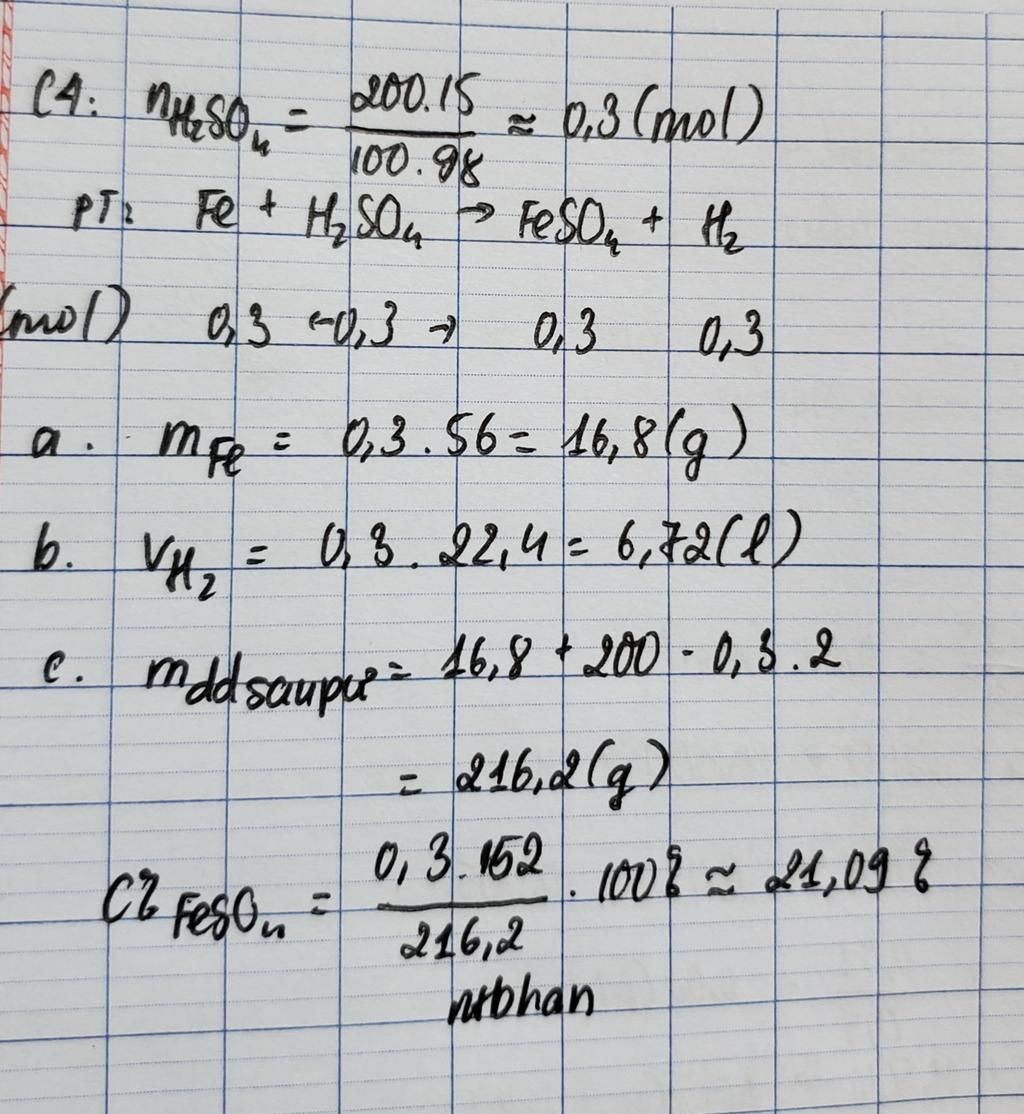 C4: nH₂SO₄ = 200.15 / 100.98 ≈ 0,3 (mol)
PT: Fe + H₂SO₄ → FeSO₄ + H₂
(mol) 0,3 ←0,3 → 0,3 0,3
a. mFe = 0,3 . 56 = 16,8 (g)
b. VH₂ = 0,3 . 22,4 = 6,72 (l)
c. mdd saupư = 16,8 + 200 - 0,3 . 2
= 216,2 (g)
C% FeSO₄ = 0,3 . 152 / 216,2 . 100% ≈ 21,09 %
ntbhan